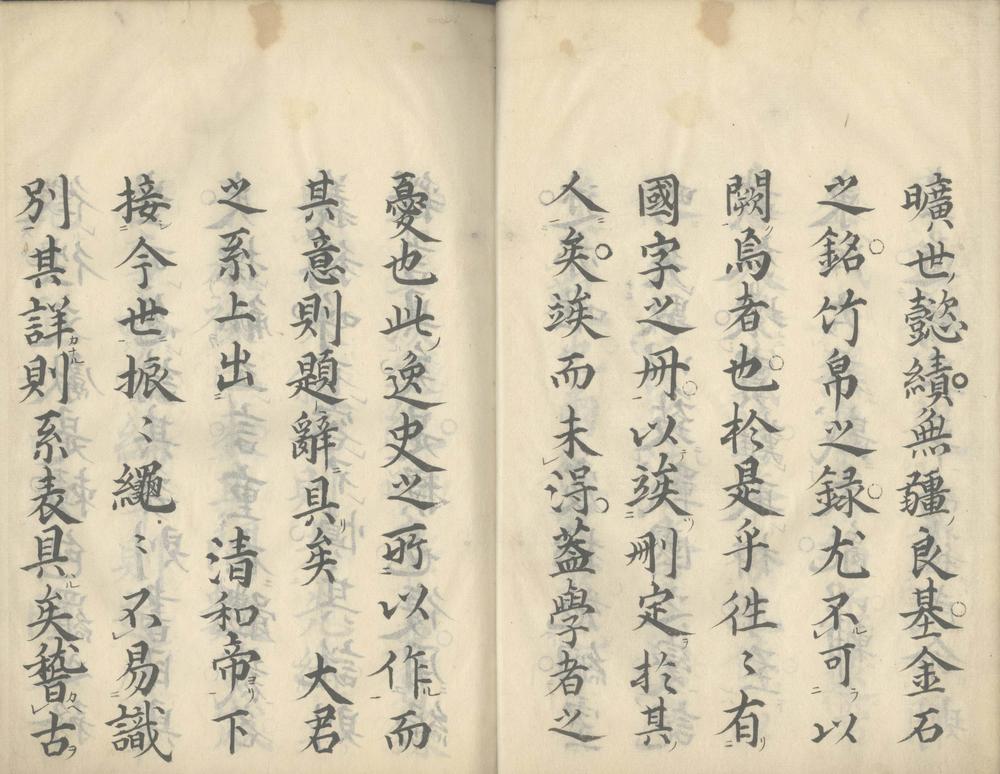 曠世懿績無疆良基金石
之銘竹帛之録尤不可以
闕焉者也於是乎徃〻有
國字之冊以竢刪定於其
人矣竢而未得蓋學者之
憂也此逸史之所以作而
其意則題辭具矣 大君
之系上出 清和帝下
接今世振〻繩〻不易識
別其詳則系表具矣稽古